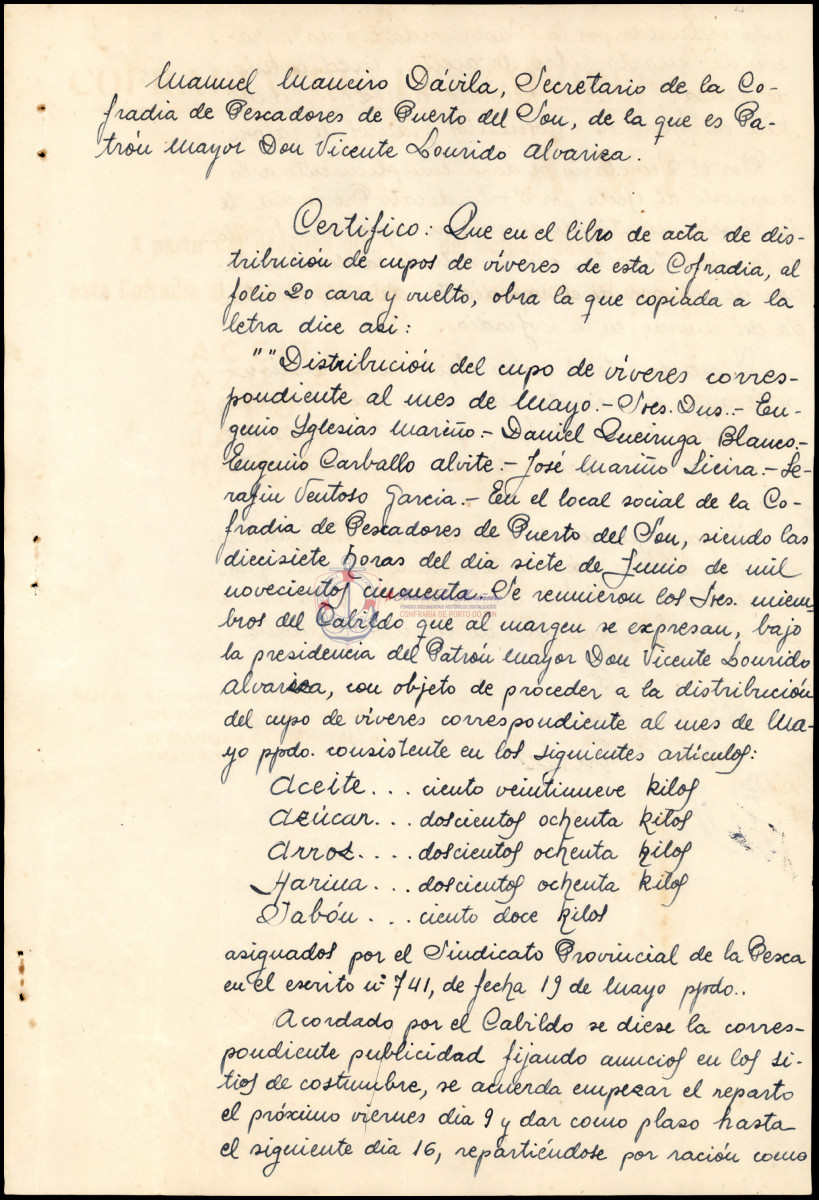 Manuel Maneiro Dávila, Secretario de la Co-
fradia de Pescadores de Puerto del Son, de la que es Pa-
trón Mayor Don Vicente Lourido Alvariza.
Certifico: Que en el libro de acta de dis-
tribución de cupos de víveres de esta Cofradia, al
folio 20 cara y vuelto, obra la que copiada a la
letra dice asi:
""Distribución del cupo de víveres corres-
pondiente al mes de Mayo.- Sres. Dns.- Eu-
genio Yglesias Mariño.- Daniel Queiruga Blanco.-
Eugenio Carballo Alvite.- José Mariño Lieira.- Se-
rafin Ventoso Garcia.- En el local social de la Co-
fradia de Pescadores de Puerto del Son, siendo las
diecisiete horas del dia siete de Junio de mil
novecientos cincuenta.- Se reunieron los Sres. miem-
bros del Cabildo que al margen se expresan, bajo
CONFRARIA DE PORTO DO SON
la presidencia del Patrón Mayor Don Vicente Lourido
Alvariza, con objeto de proceder a la distribución
del cupo de víveres correspondiente al mes de Ma-
yo ppdo. consistente en los siguientes artículos:
Aceite... ciento veintinueve kilos
Azúcar... doscientos ochenta kilos
Arroz.... doscientos ochenta kilos
Harina... doscientos ochenta kilos
Jabón... ciento doce kilos
asignados por el Sindicato Provincial de la Pesca
en el escrito nº 741, de fecha 19 de Mayo ppdo..
Acordado por el Cabildo se diese la corres-
pondiente publicidad fijando anuncios en los si-
tios de costumbre, se acuerda empezar el reparto
el próximo viernes dia 9 y dar como plazo hasta
el siguiente dia 16, repartiéndose por ración como